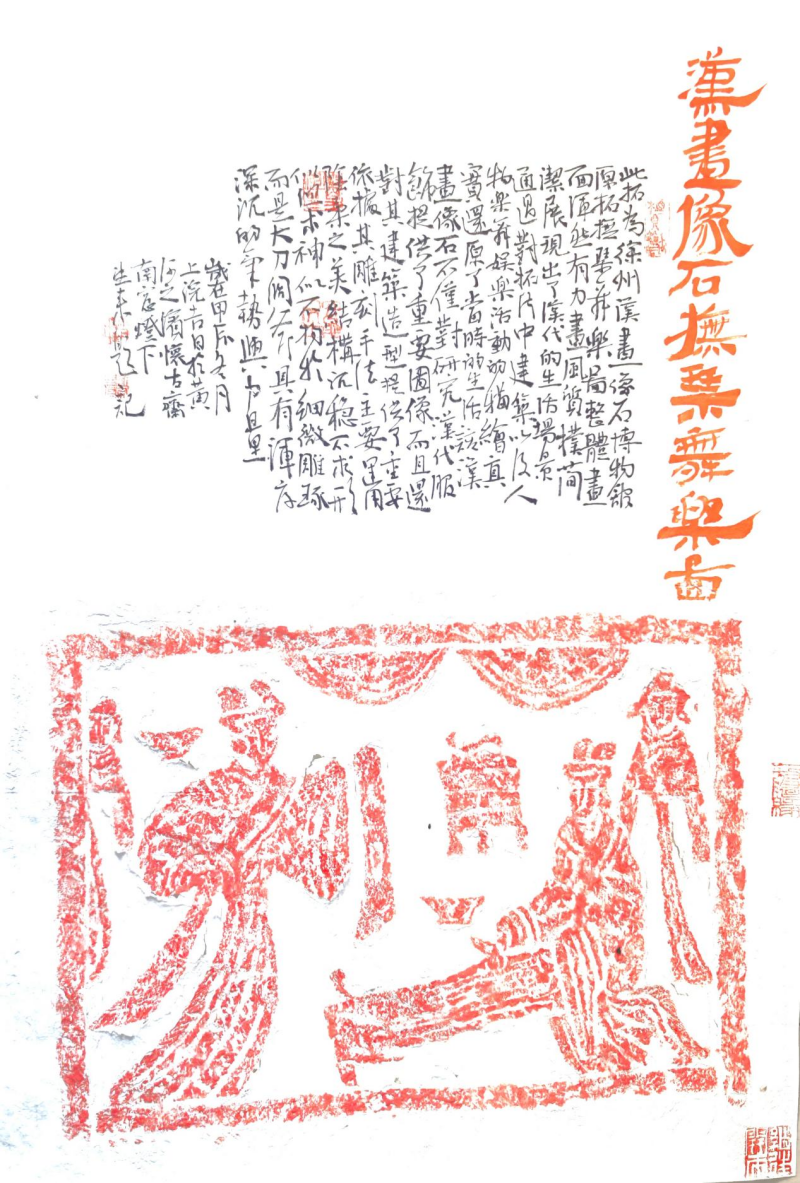 漢畫像石撫琴舞樂畵
此拓為徐州漢畫像石博物館
原拓撫琴舞樂局整體畫
面渾然有力畫風質樸簡
潔展現出了漢代的生活場景
通過對拓片中建築以及人
物樂舞娛樂活動的描繪真
實還原了當時的生活該漢
畫像石不僅對研究漢代服
飾提供了重要圖像而且還
對其建築造型提供了重要
依據其雕刻手法主要運用
陰柔之美結構沉穩不求形
似求神似不拘於細微雕琢
而是大刀闊斧且有渾厚
深沉的氣勢與力且里
歲在甲辰冬月
上浣吉日於黃
河之濱懷古齋
南窗燈下
生來題記